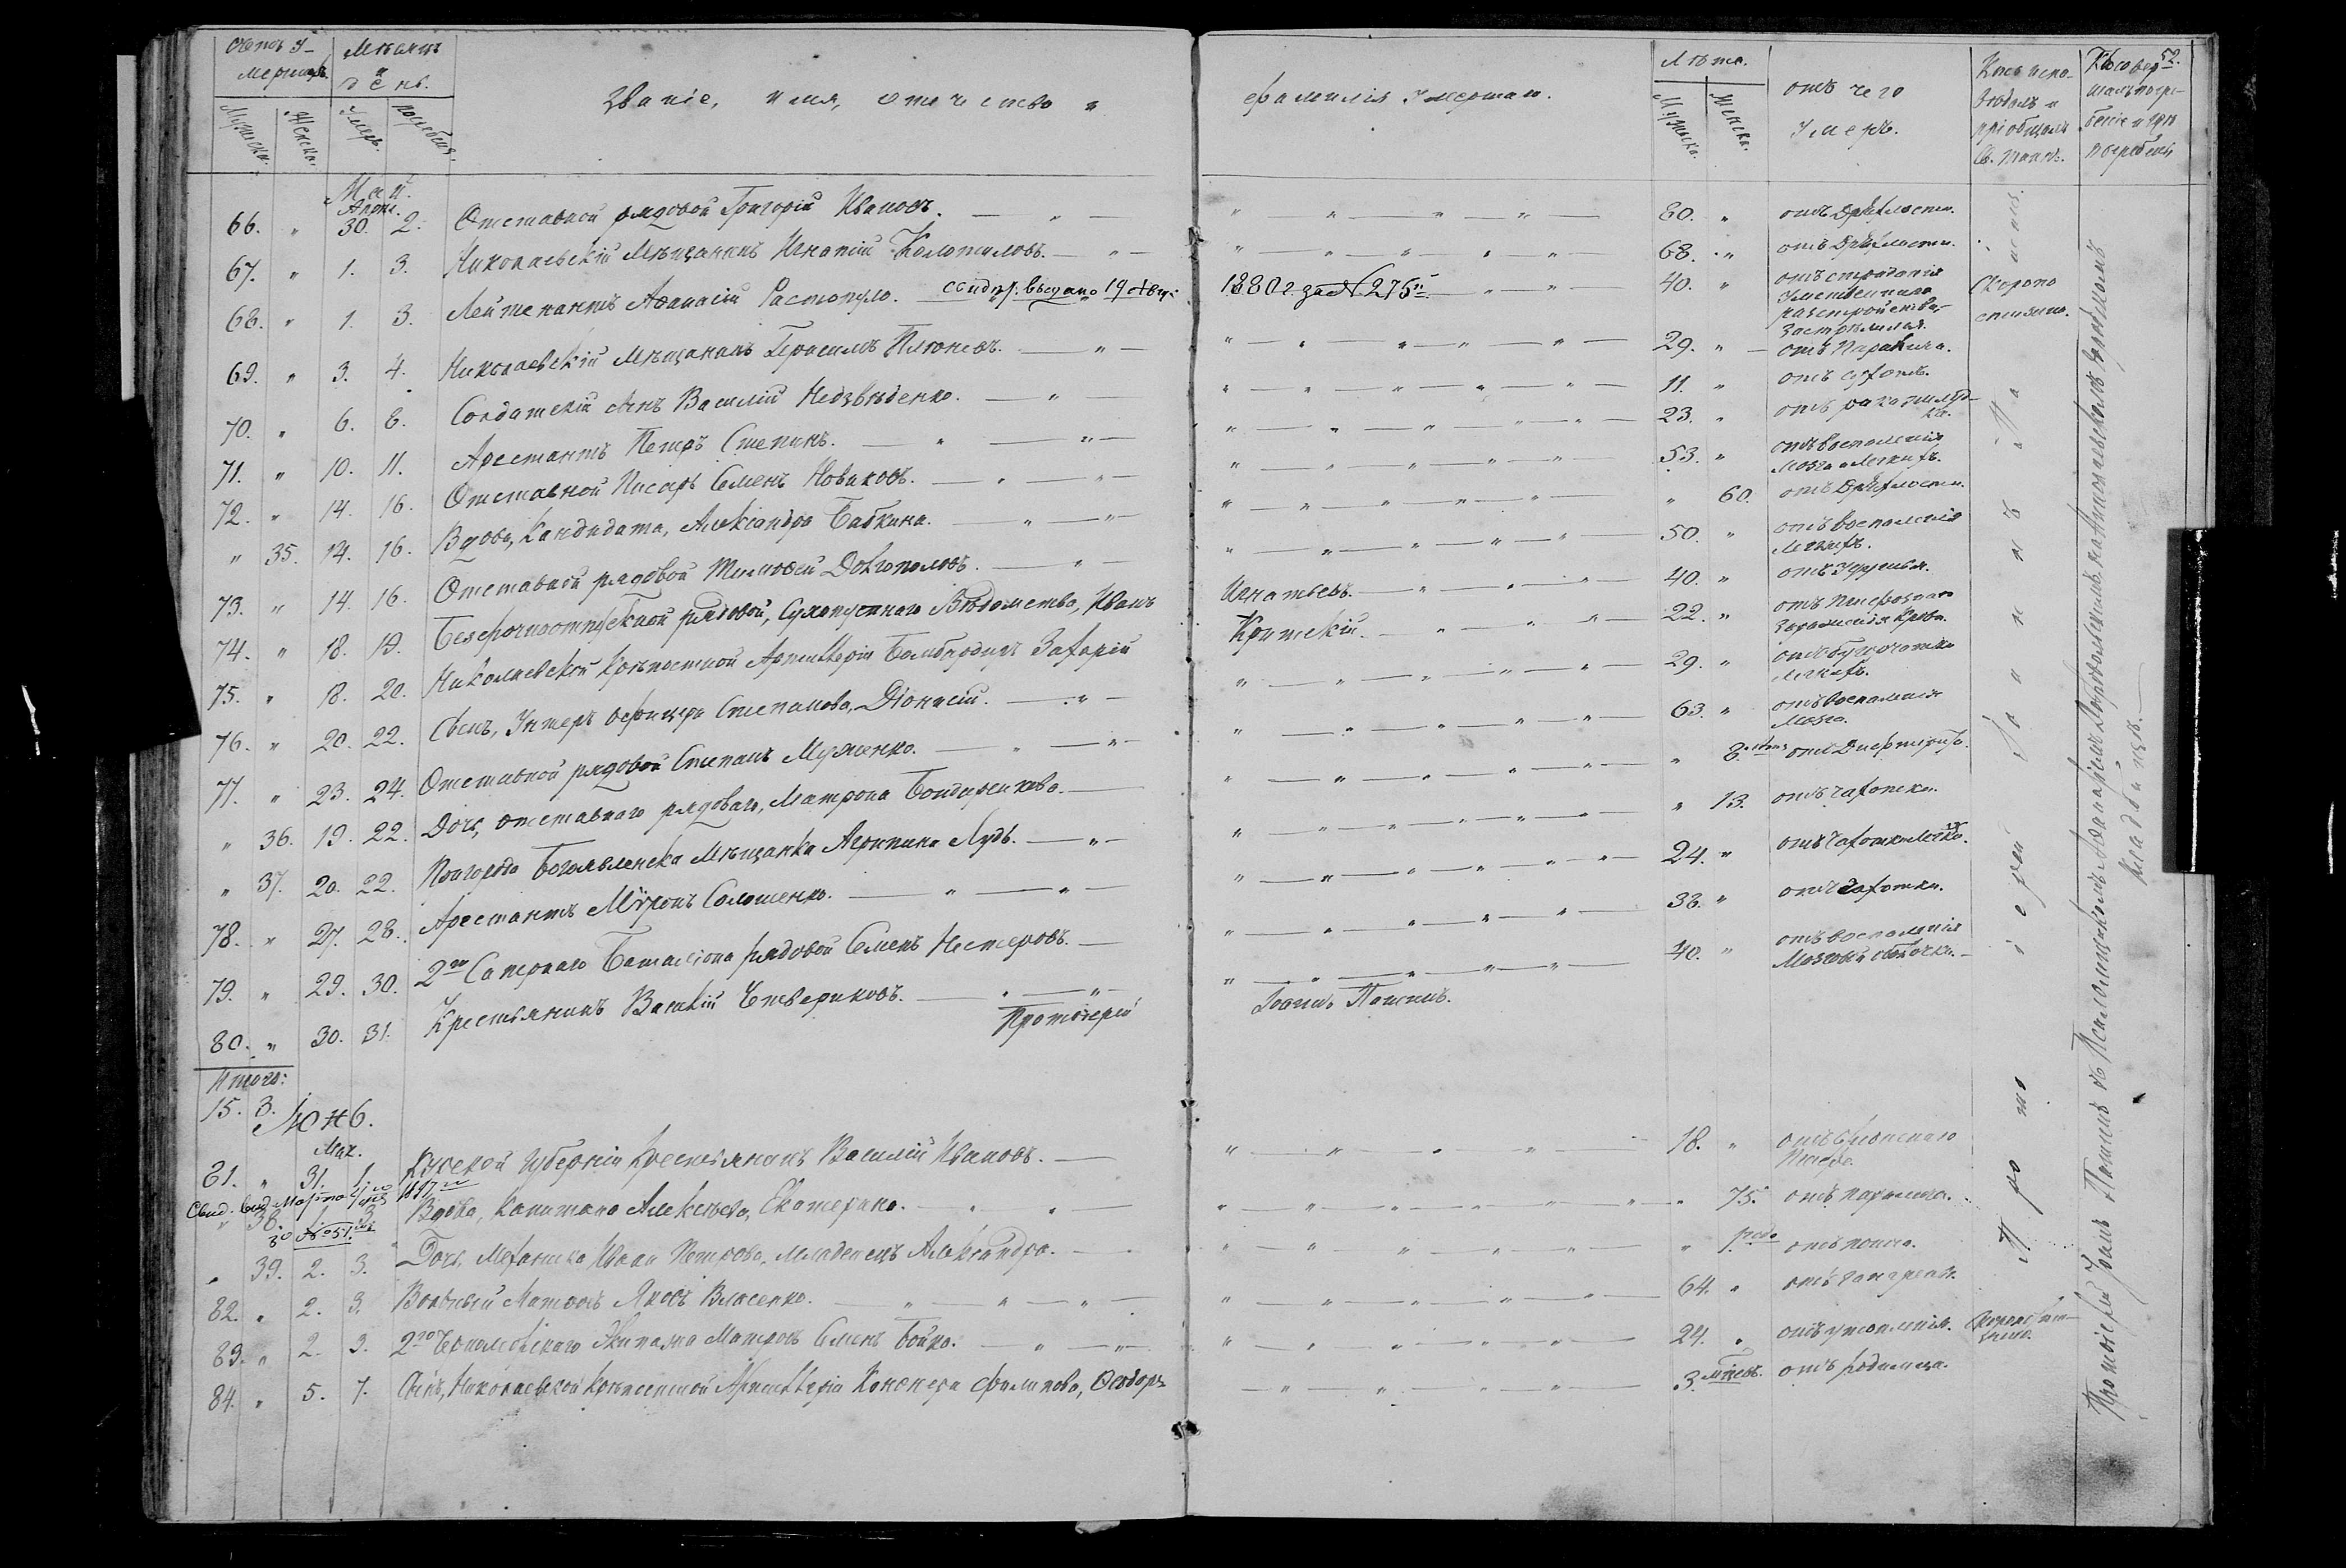 Счетъ у-
мершихъ.
Мѣсяцъ
и
день.
Мужеска.
Женска.
Умеръ.
погребенъ.
Званіе, имя, отчество и
фамилія умершаго.
Лѣта.
Мужеска.
Женска.
отъ чего
умеръ.
Кто испо-
вѣдалъ и
пріобщалъ
Св. Таинъ.
Кто совер-
шалъ погре-
беніе и гдѣ
погребены
52.
Май.
Апрѣл.
66. " 30. 2. Отставной рядовой Григорій Ивановъ. 80. " отъ Дряхлости.
67. " 1. 3. Николаевскій Мѣщанинъ Игнатій 68. " отъ Дряхлости.
68. " 1. 3. Лейтенантъ Аѳанасій Растопуло. свидѣт. выдано 19 1880 г. за № 275 40. " отъ страданія
умственнаго
разстройства,
застрѣлился.
Скоропо
стижно.
69. " 3. 4. Николаевскій Мѣщанинъ Герасимъ 29. " отъ Паралича.
70. " 6. 8. Солдатскій сынъ Василій Недзвѣденко. 11. " отъ сухотъ.
71. " 10. 11. Арестантъ Петръ Степинъ. 23. " отъ рака желуд-
ка.
72. " 14. 16. Отставной Писарь Семенъ Новиковъ. 53. " отъ воспаленія
мозга и легкихъ.
" 35. 14. 16. Вдова, Кандидата, Александра Бабкина. " 60. отъ Дряхлости.
73. " 14. 16. Отставной рядовой Тимоѳей Довгополовъ. 50. " отъ воспаленія
легкихъ.
74. " 18. 19. Безсрочноотпускной рядовой, Сухопутнаго Вѣдомства, Иванъ Игнатьевъ. 40. " отъ удушья.
75. " 18. 20. Николаевской Крѣпостной Артиллеріи Бомбардиръ Захарій Критскій. 22. " отъ
зараженія крови.
76. " 20. 22. Сынъ, Унтеръ офицера Степанова, Діонисій. 29. " отъ бугорчатки
легкихъ.
77. " 23. 24. Отставной рядовой Степанъ Муженко. 63. " отъ воспаленія
мозга.
" 36. 19. 22. Дочь, отставнаго рядоваго, Матрона Бондаренкова. " 8. отъ Дифтерита.
" 37. 20. 22. Пригорода Богоявленска Мѣщанка Агрипина Лудь. " 13. отъ чахотки.
78. " 27. 28. Арестантъ Мѵронъ Соломенко. 24. " отъ чахотки легкихъ.
79. " 29. 30. 2го Сапернаго Баталіона рядовой Семенъ Нестеровъ. 38. " отъ чахотки.
80. " 30. 31. Крестьянинъ Василій Четвериковъ. 40. " отъ воспаленія
мозговой оболочки.
Протоіерей Іоаннъ
Итого:
15. 3.
Іюнь.
Мая.
81. " 31. 1. Курской Губерніи Крестьянинъ Василій Ивановъ. 18. " отъ брюшнаго
Тифа.
Свид. выд. Марта 4 дня 1897 г.
за № 51.
" 38. 1. 3. Вдова, Капитана Алексѣева, Екатерина. " 75. отъ паралича.
" 39. 2. 3. Дочь, Механика Ивана Петрова, младенецъ Александра. " 1. года отъ поноса.
82. " 2. 3. Вольный Матросъ Яковъ Власенко. 64. " отъ гангрены.
83. " 2. 3. 2го Черноморскаго Экипажа Матросъ Семенъ Бойко. 24. " отъ утопленія. Скоропости-
жно.
84. " 5. 7. Сынъ, Николаевской Крѣпостной Артиллеріи Канонера Филипова, Ѳеодоръ 3. мѣсяц. отъ родимца.
Протоіерей Іоаннъ
Протоіерей Іоаннъ съ Псаломщикомъ на Николаевскомъ Градскомъ
Кладбищѣ.